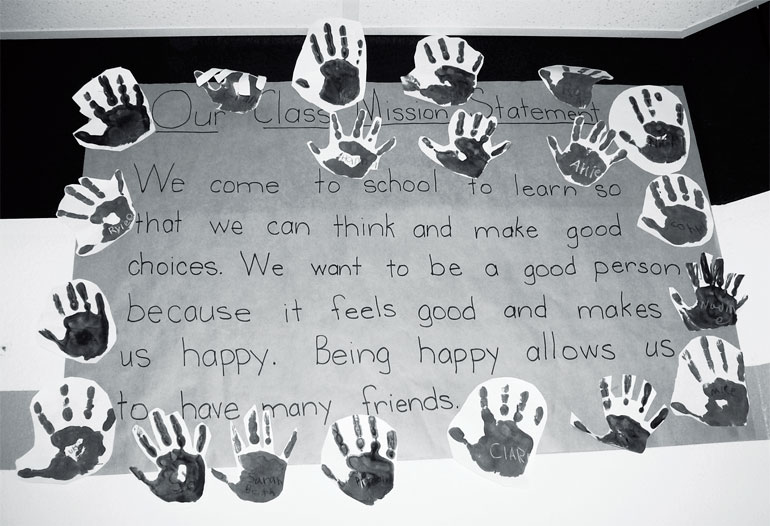 Our Class Mission Statement
We come to school to learn so
that we can think and make good
choices. We want to be a good person
because it feels good and makes
us happy. Being happy allows us
to have many friends.
Allie
Rylee
Sarah
CLAR